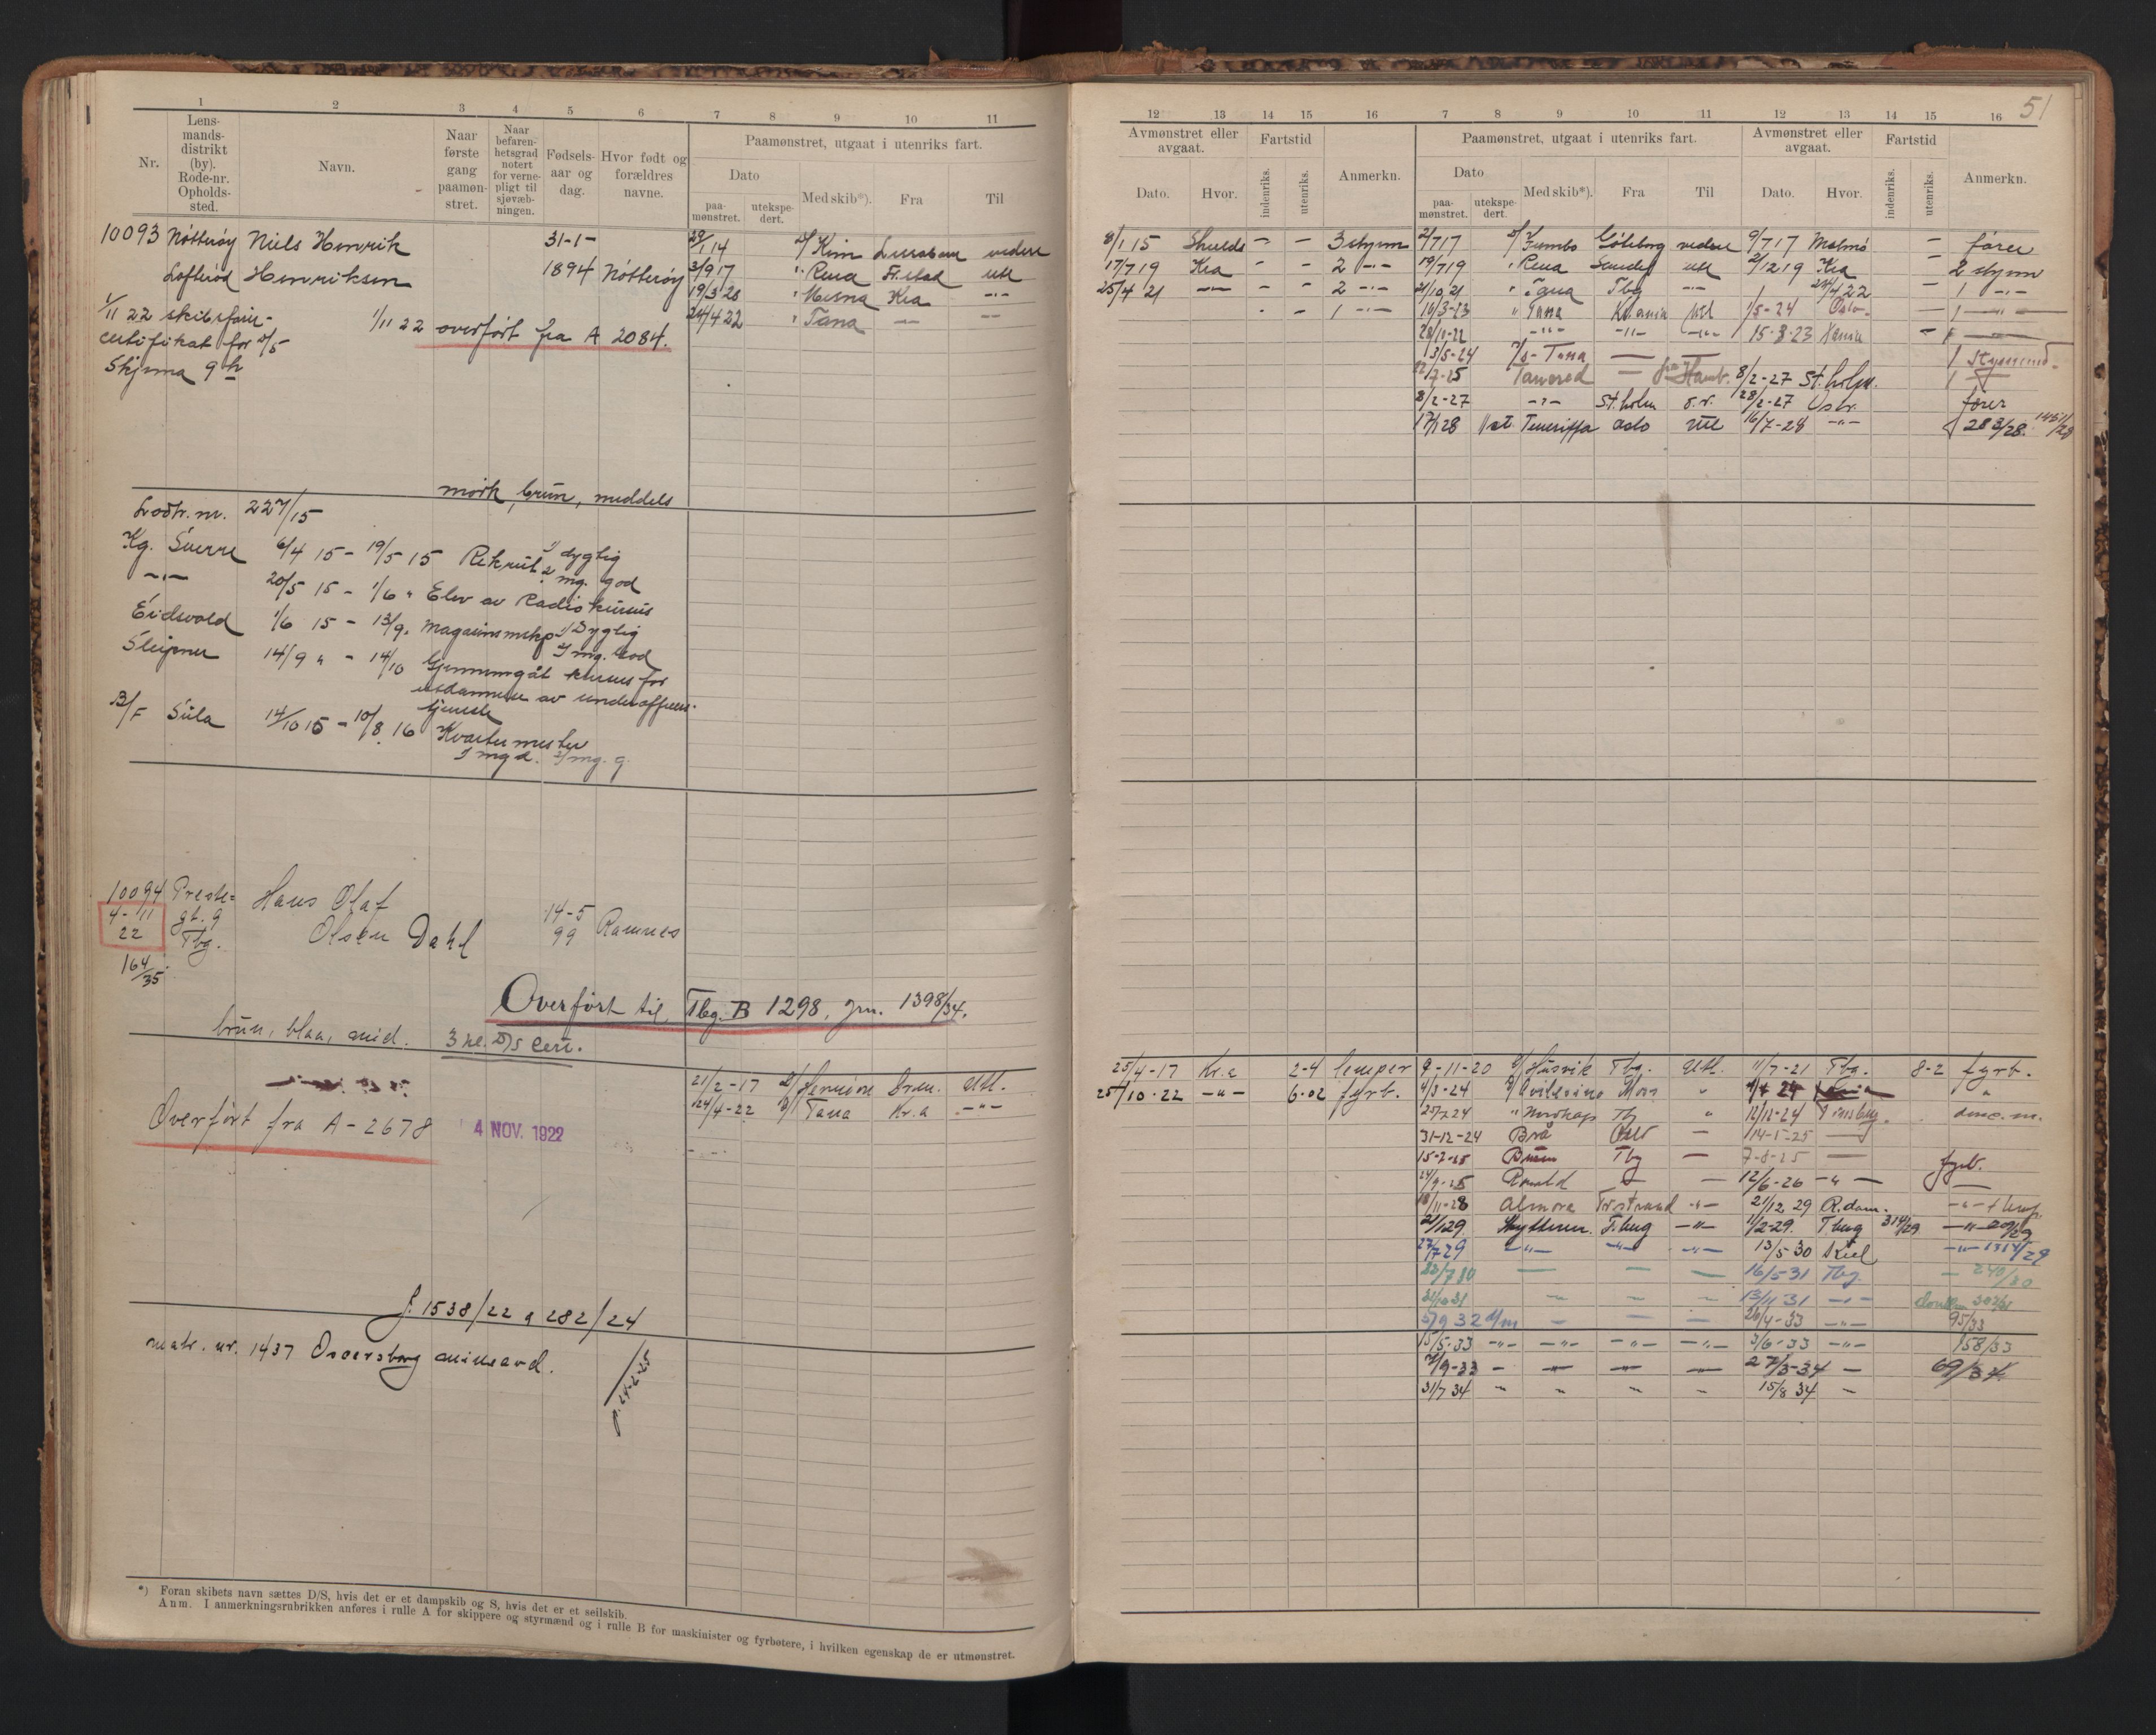 1 2 3 4 5 6 7 8 9 10 11
Nr. Lensmands-distrikt (by). Rode-nr. Opholds-sted. Navn. Naar første gang paamøn-stret. Naar befaren-hetsgrad notert for verne-pligt til sjøvæb-ningen. Fødsels-aar og dag. Hvor født og forældres navne. Paamønstret, utgaat i utenriks fart.
Dato
paa-mønstret. utekspe-dert. Med skib*). Fra Til
10093 Nøtterøy Niels Henrik 31-1- 29/1 14 Kim videre
Lofterød Henriksen 1894 Nøtterøy 3/9 17 " Rena Fr.stad utl
19/3 20 " Mesna Kra -"-
1/11 22 skibsfører- 1/11 22 overført fra A 2084. 24/4 22 " Tana — —
certifikat for D/S
Skjema 9
mørk, brun, middels
Lodtr. nr. 227/15
Kg. Sverre 6/4 15 - 19/5 15 Rekrut 1/ dygtig
2 mg. god
-"- 20/5 15 - 1/6 " Elev av Radiokursus
Eidsvold 1/6 15 - 13/9. 1/ Dygtig
2 mg. God
Sleipner 14/9 " - 14/10 Gjennemgåt kursus for
utdannelse av underofficers.
tjeneste
B/F Sula 14/10 15 - 10/8 16 Kvartermester
1 mg d. 2/ mg. g.
10094 Preste- Hans Olaf
4-11 gt. 9 14-5
22 Tbg. Olsen Dahl 99 Ramnes
164/35
Overført til Tbg. B 1298, jrn. 1398/34.
brun, blaa, mid. 3 kl. D/S cert.
21/2-17 D/ Dram. Utl.
24/4-22 D/ Tana Kr.a -"-
Overført fra A-2678 4 NOV. 1922
J. 1538/22 & 282/24
matr. nr. 1437 Oscarsborg mineavd.
p. 24-2-25
*) Foran skibets navn sættes D/S, hvis det er et dampskib og S, hvis det er et seilskib.
Anm. I anmerkningsrubrikken anføres i rulle A for skippere og styrmænd og i rulle B for maskinister og fyrbøtere, i hvilken egenskap de er utmønstret.
51
12 13 14 15 16 7 8 9 10 11 12 13 14 15 16
Avmønstret eller avgaat. Fartstid Anmerkn. Paamønstret, utgaat i utenriks fart. Avmønstret eller avgaat. Fartstid Anmerkn.
Dato. Hvor. indenriks. utenriks. Dato paa-mønstret. utekspe-dert. Med skib*). Fra Til Dato. Hvor. indenriks. utenriks.
8/1 15 Shields - - 3 styrm 2/7 17 Jumbo Göteborg videre 9/7 17 Malmö - fører
17/7 19 Kra - - 2 -"- 19/7 19 " Rena utl 2/12 19 Kra - 2 styrm
25/4 21 -"- - - 2 -"- 21/10 21 " Tana Tbg -"- 24/4 22 - 1 -"-
- - 1 -"- 10/3-23 " Tana Kr.ania Utl 1/5-24 Oslo - 1 -"-
28/11-22 -"- -"- -"- 15-3-23 -
13/5-24 Tana — — 1 Styrmand
Tancred — fra Hamb. 8/2-27 St.holm. 1 -"-
8/2-27 -"- St.holm 28/2-27 fører
Teneriffa Oslo Utl 16/7-28 -"- 283/28.
25/4-17 Kr.a 2-4 lemper 9-11-20 D/ Husvik Tbg. Utl. 11/7-21 Tbg. 8-2 fyrb.
25/10-22 -"- 6-02 fyrb. 4/3-24 Moss " "
Tbg " 12/12-24 Tønsberg. donc.m.
31-12-24 Brå Oslo — 14-1-25 —
15-2-25 Tbg — 7-8-25 — fyrb.
Ronald — — 12/6-26 -"- —
18/11-28 Almora Fr.strand -"- 21/12 29 R.dam. -"-
21/1 29. T.berg -"- 1/2-29. T.berg 314/29 -"-
27/7 29 -"- -"- -"- 13/5 30 Kiel -"- 1314/29
23/7 30 — — — 16/5-31 Tbg. - 240/30
31/10 31 ~ ~ ~ 13/11 31 -"-
9 32 - - - 26/4-33 -"- 95/33
15/5-33 -"- -"- -"- -"- 3/6-33 -"- 158/33
-"- — — 27/3-34 — 69/34
31/7 34 ~ ~ ~ ~ 15/8 34 ~